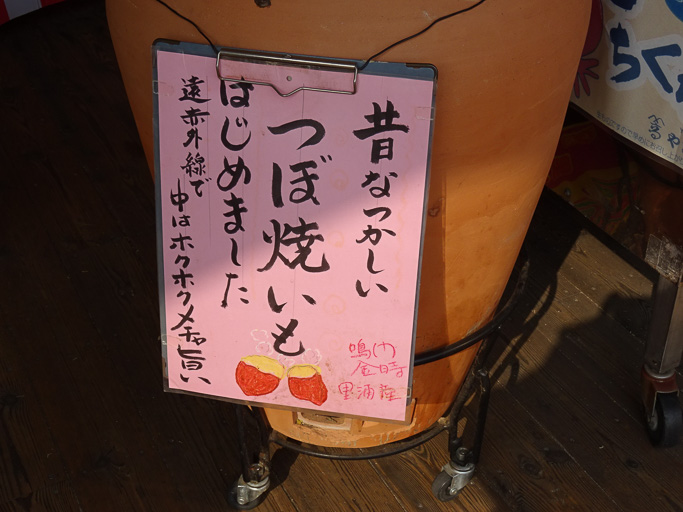 昔なつかしい
つぼ焼いも
はじめました
遠赤外線で
中はホクホクメチャ旨い
鳴門
金時
里浦産
ちくわ